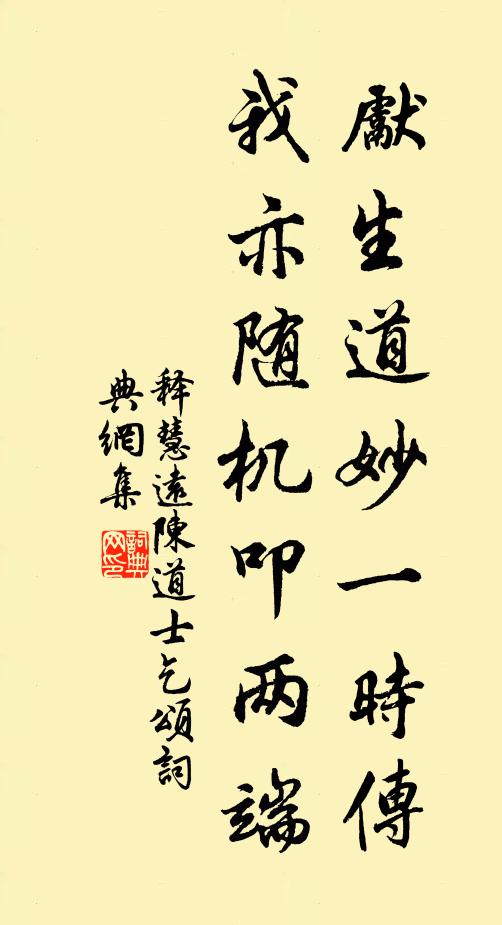 獻生道妙一時傳
我亦随机叩两端
释慧遠陳道士乞頌詞
典網集
詞典網印